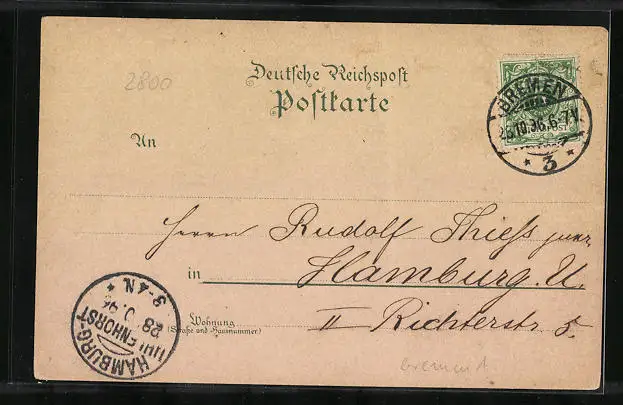 2800
Deutsche Reichspost
Postkarte
BREMEN
10.96.6-7N
* 3 *
An
Herrn Rudolf Thiess junr.
in Hamburg. U.
Wohnung
(Straße und Hausnummer)
II Richterstr 5.
HAMBURG-
UHLENHORST
28
96
3-4N.